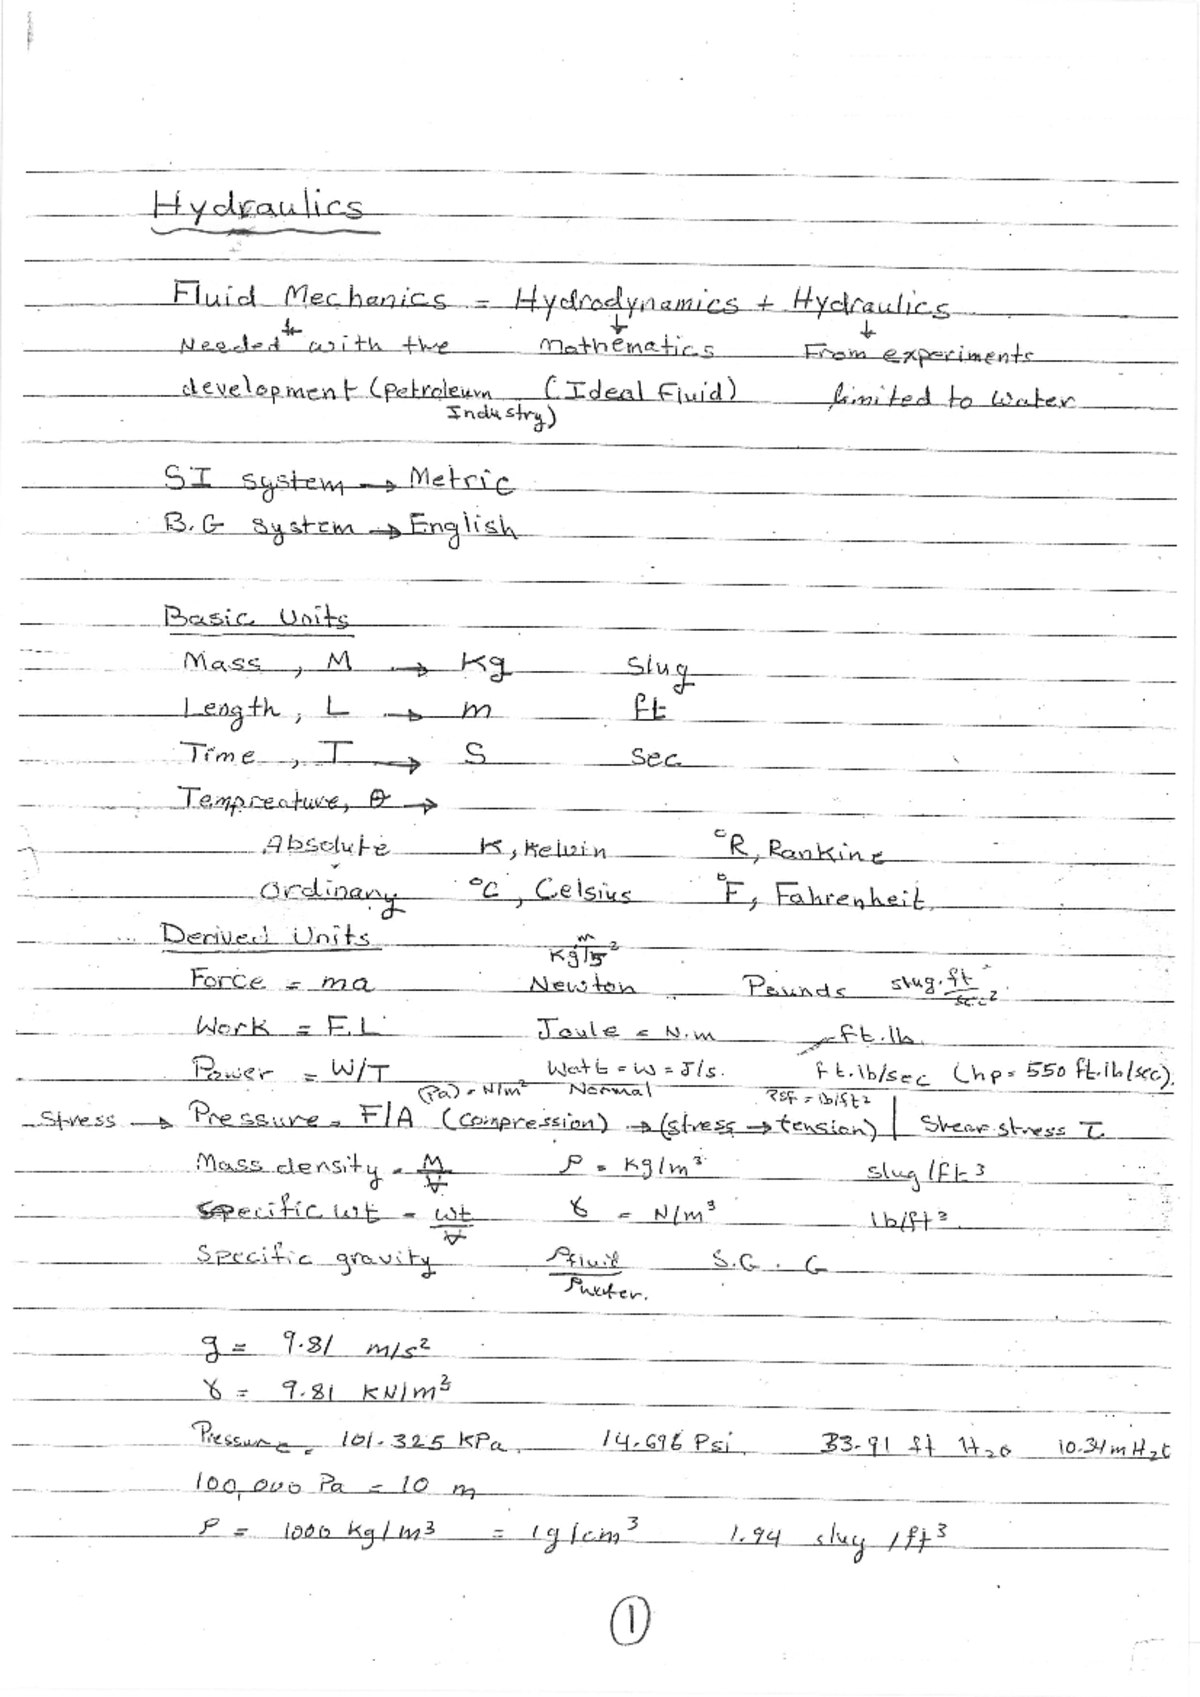 Hydraulics
Fluid Mechanics = Hydrodynamics + Hydraulics
↓ ↓ ↓
Needed with the Mathematics From experiments
development (petroleum (Ideal Fluid) limited to water
Industry)
SI system → Metric
B.G system → English
Basic Units
Mass, M → Kg Slug
Length, L → m ft
Time, T → S Sec
Tempreature, θ →
Absolute K, Kelvin °R, Rankine
Ordinary °C, Celsius °F, Fahrenheit
Derived Units Kg m/s²
Force = ma Newton Pounds slug.ft/sec²
Work = F.L Joule = N.m ft.lb
Power = W/T Watt = W = J/s. ft.lb/sec (hp = 550 ft.lb/sec).
(Pa) = N/m² Normal PSF = lb/ft²
Stress → Pressure = F/A (compression) → (stress → tension) | Shear stress τ
Mass density = M/V ρ = Kg/m³ slug/ft³
Specific wt = wt/V γ = N/m³ lb/ft³
Specific gravity ρfluid/ρwater. S.G. G
g = 9.81 m/s²
γ = 9.81 KN/m³
Pressure = 101.325 KPa. 14.696 Psi. 33.91 ft H₂O 10.34 m H₂O
100,000 Pa = 10 m
ρ = 1000 Kg/m³ = 1g/cm³ 1.94 slug/ft³
1